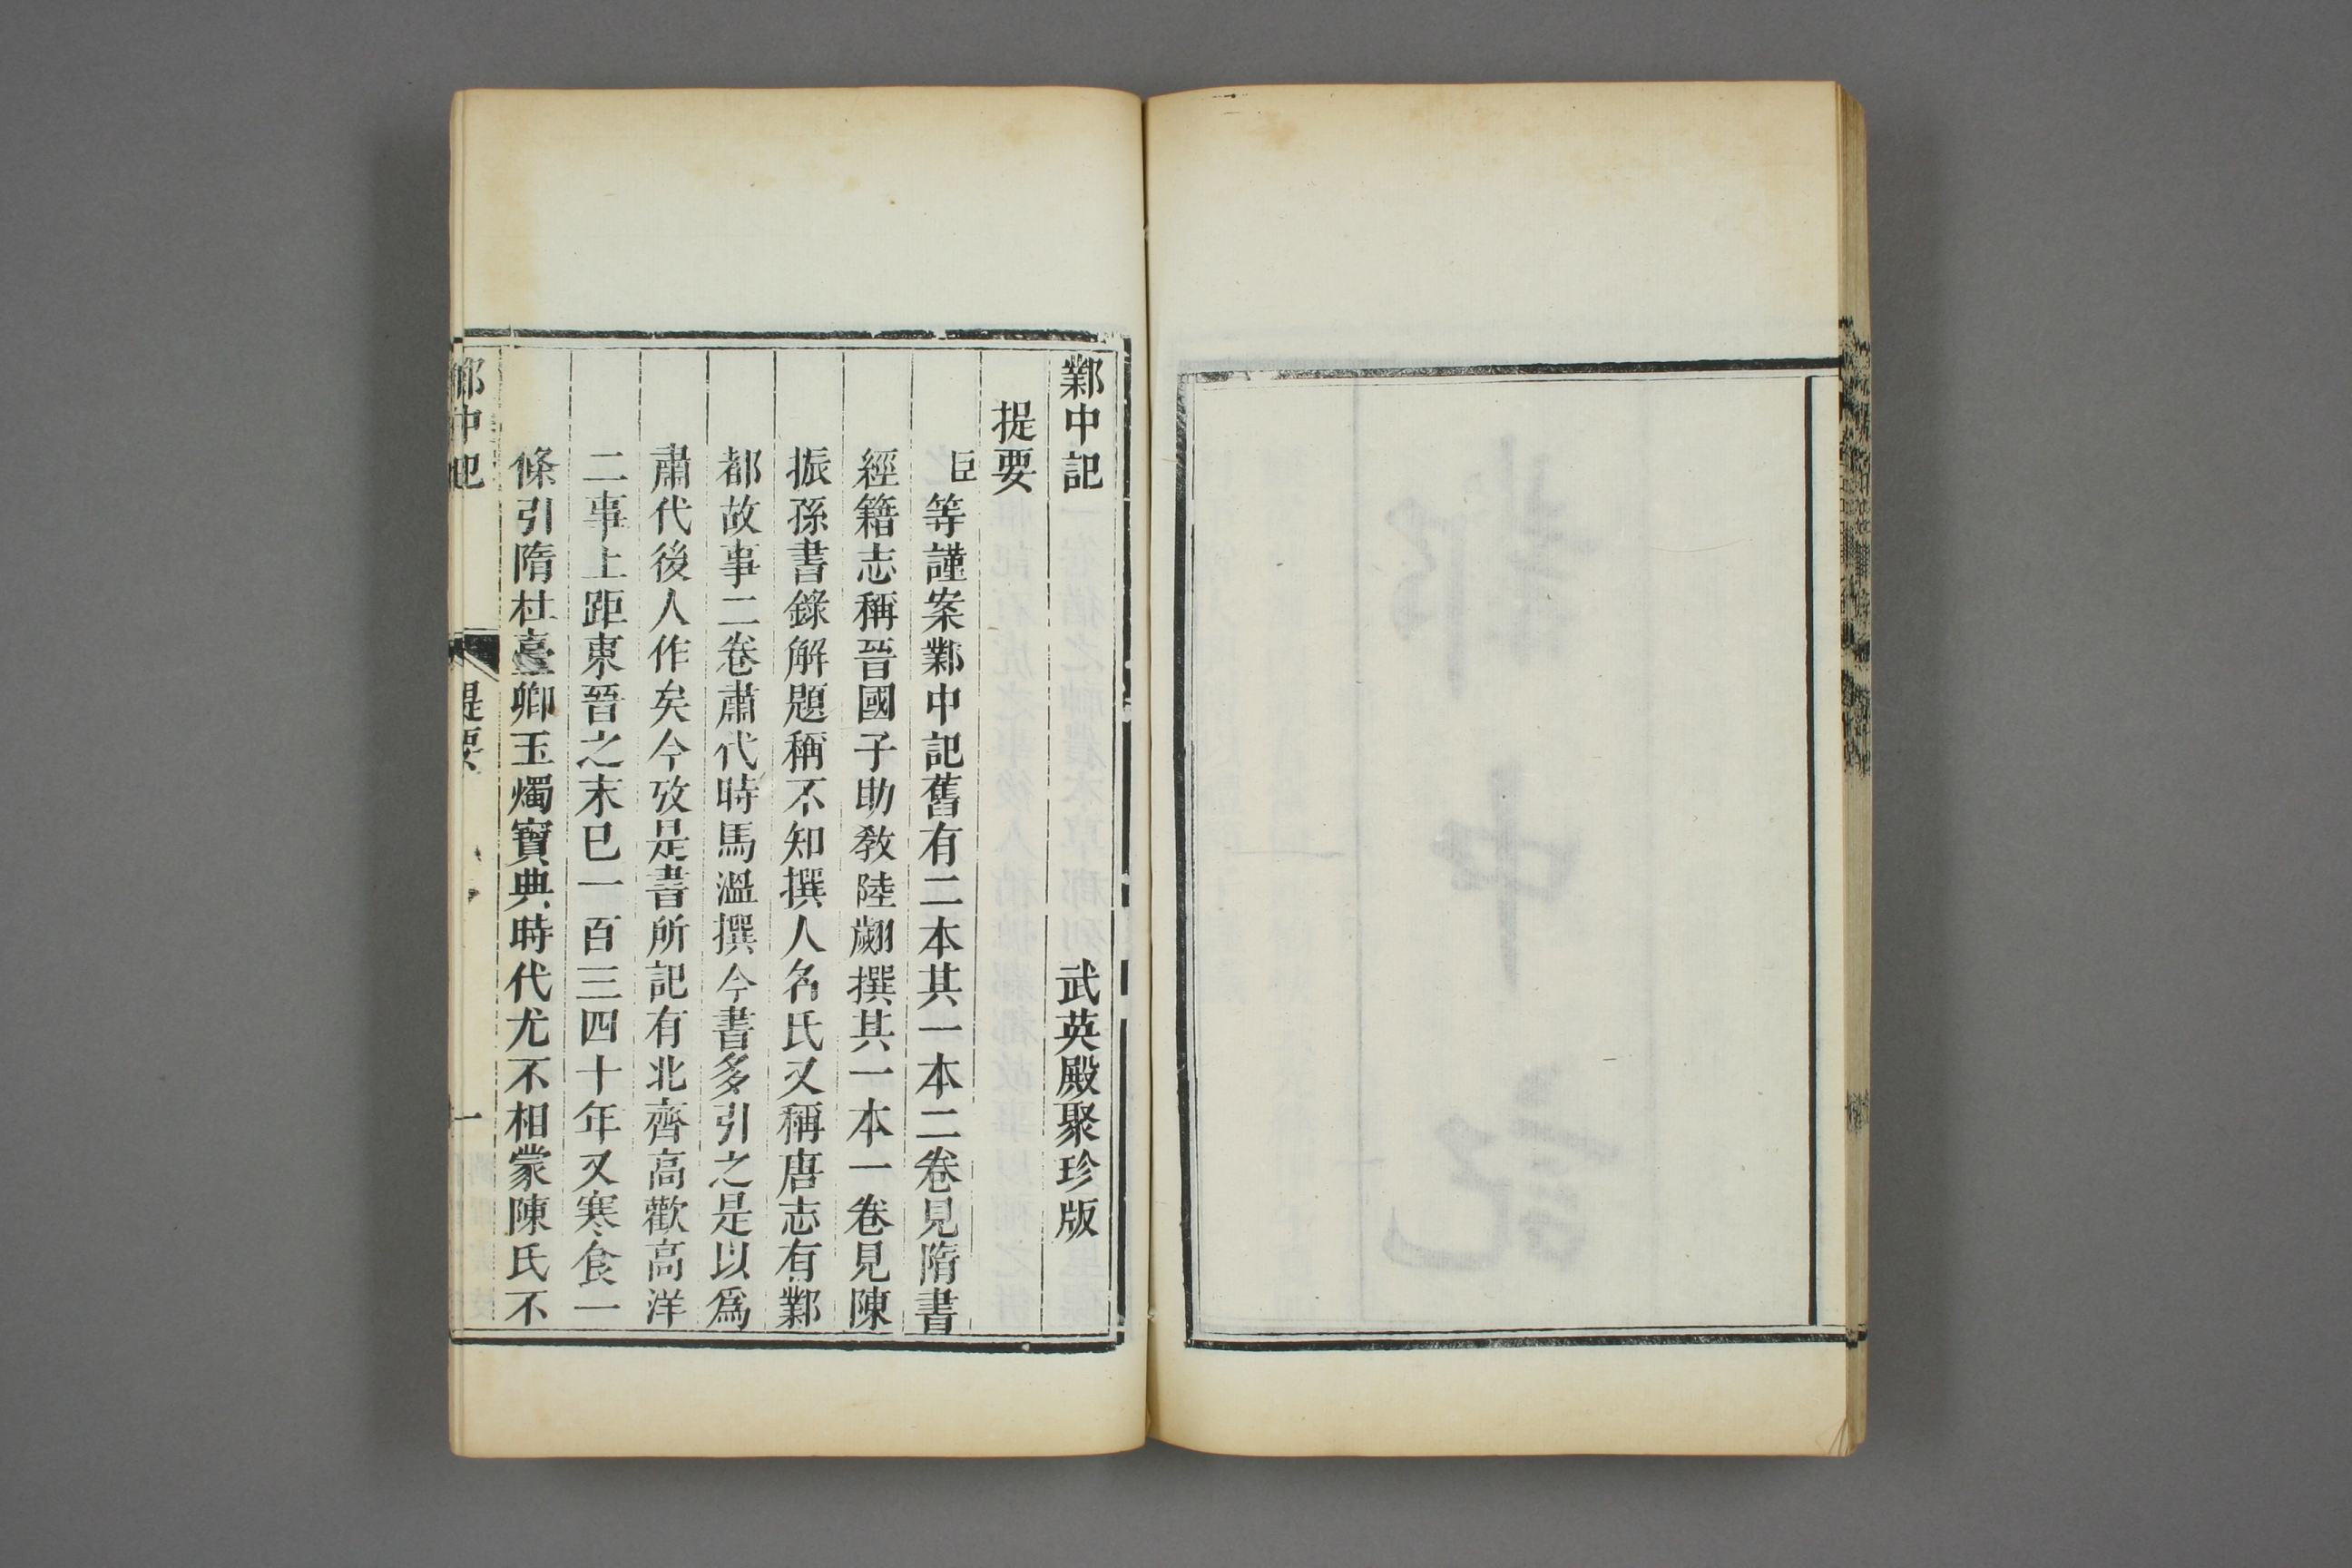 鄴中記 武英殿聚珍版
提要
臣等謹案鄴中記舊有二本其一本二卷見隋書
經籍志稱晉國子助敎陸翽撰其一本一卷見陳
振孫書錄解題稱不知撰人名氏又稱唐志有鄴
都故事二卷肅代時馬溫撰今書多引之是以爲
肅代後人作矣今攷是書所記有北齊高歡高洋
二事上距東晉之末已一百三四十年又寒食一
條引隋杜臺卿玉燭寶典時代尤不相蒙陳氏不
鄴中記 提要 一